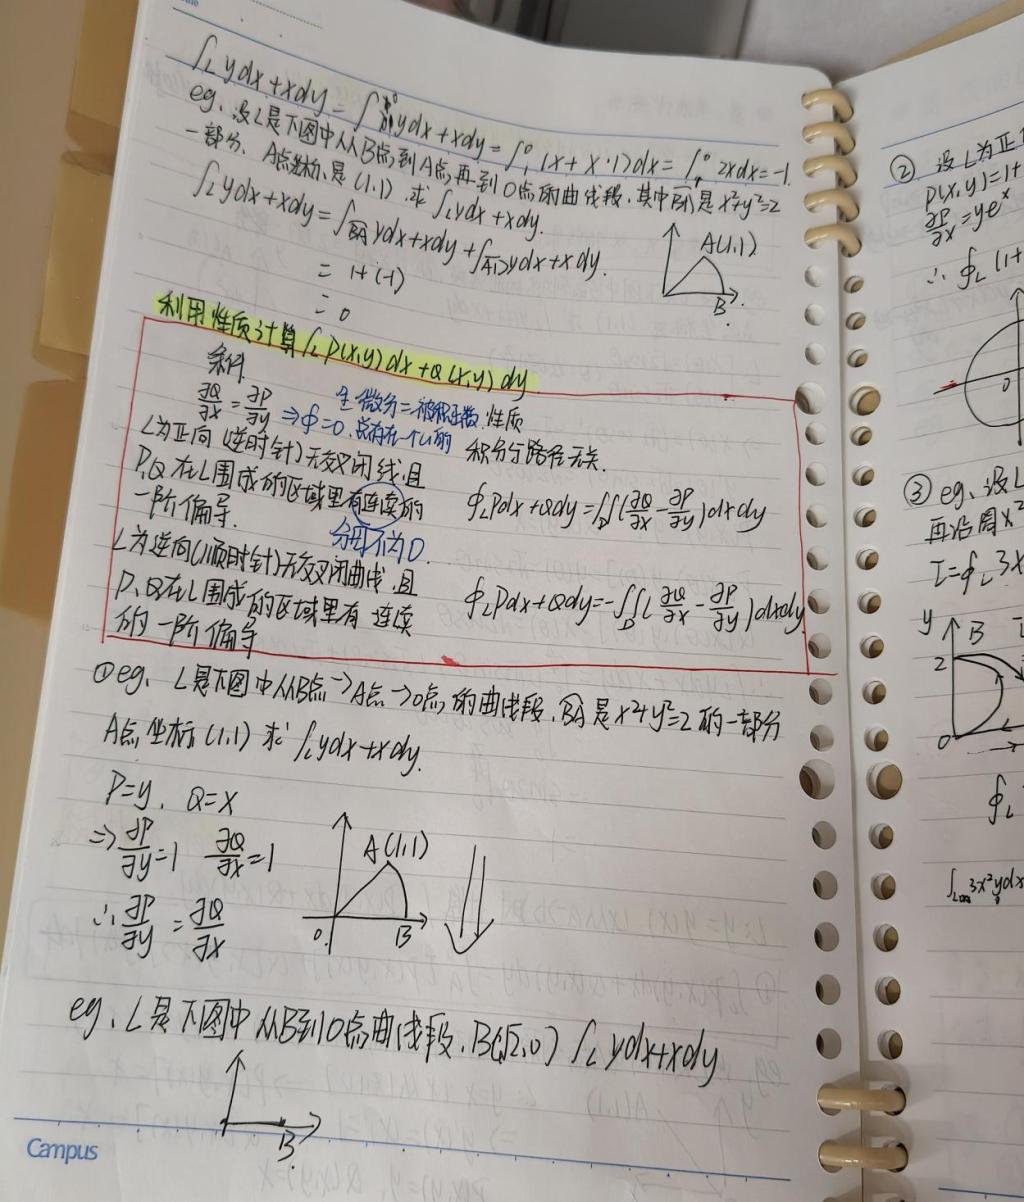 ∫_L ydx+xdy = ∫ ydx+xdy = ∫₁⁰ (x+x·1)dx = ∫₁⁰ 2xdx=-1.
eg、设L是下图中从B点到A点,再到O点的曲线段,其中BA是x²+y²=2
一部分、A点坐标是(1,1).求∫_L ydx+xdy.
∫_L ydx+xdy=∫_BA ydx+xdy+∫_AO ydx+xdy.
= 1+(-1)
= 0
A(1,1)
B
利用性质计算∫_L P(x,y)dx+Q(x,y)dy
条件
∂Q/∂x=∂P/∂y ⇒∮=0.
全微分=被积函数
总存在一个u的
性质
积分与路径无关.
L为正向(逆时针)无交叉闭线,且
P,Q在L围成的区域里有连续的
一阶偏导.
分母不为0
∮_L Pdx+Qdy=∬_D(∂Q/∂x-∂P/∂y)dxdy
L为逆向(顺时针)无交叉闭曲线,且
P、Q在L围成的区域里有连续
的一阶偏导
∮_L Pdx+Qdy=-∬_D(∂Q/∂x-∂P/∂y)dxdy
①eg、L是下图中从B点→A点→O点的曲线段,BA是x²+y²=2的一部分
A点坐标(1,1)求∫_L ydx+xdy.
P=y、Q=x
⇒∂P/∂y=1 ∂Q/∂x=1
∴∂P/∂y=∂Q/∂x
A(1,1)
0
B
eg、L是下图中从B到O点曲线段.B(√2,0) ∫_L ydx+xdy
B
Campus
② 设L为正
P(x,y)=1+
∂P/∂x=ye^x
∴∮_L (1+
0
③eg、设L
再沿圆x²
I=∮_L 3x
y
B
2
0
∮_L
3x²ydx